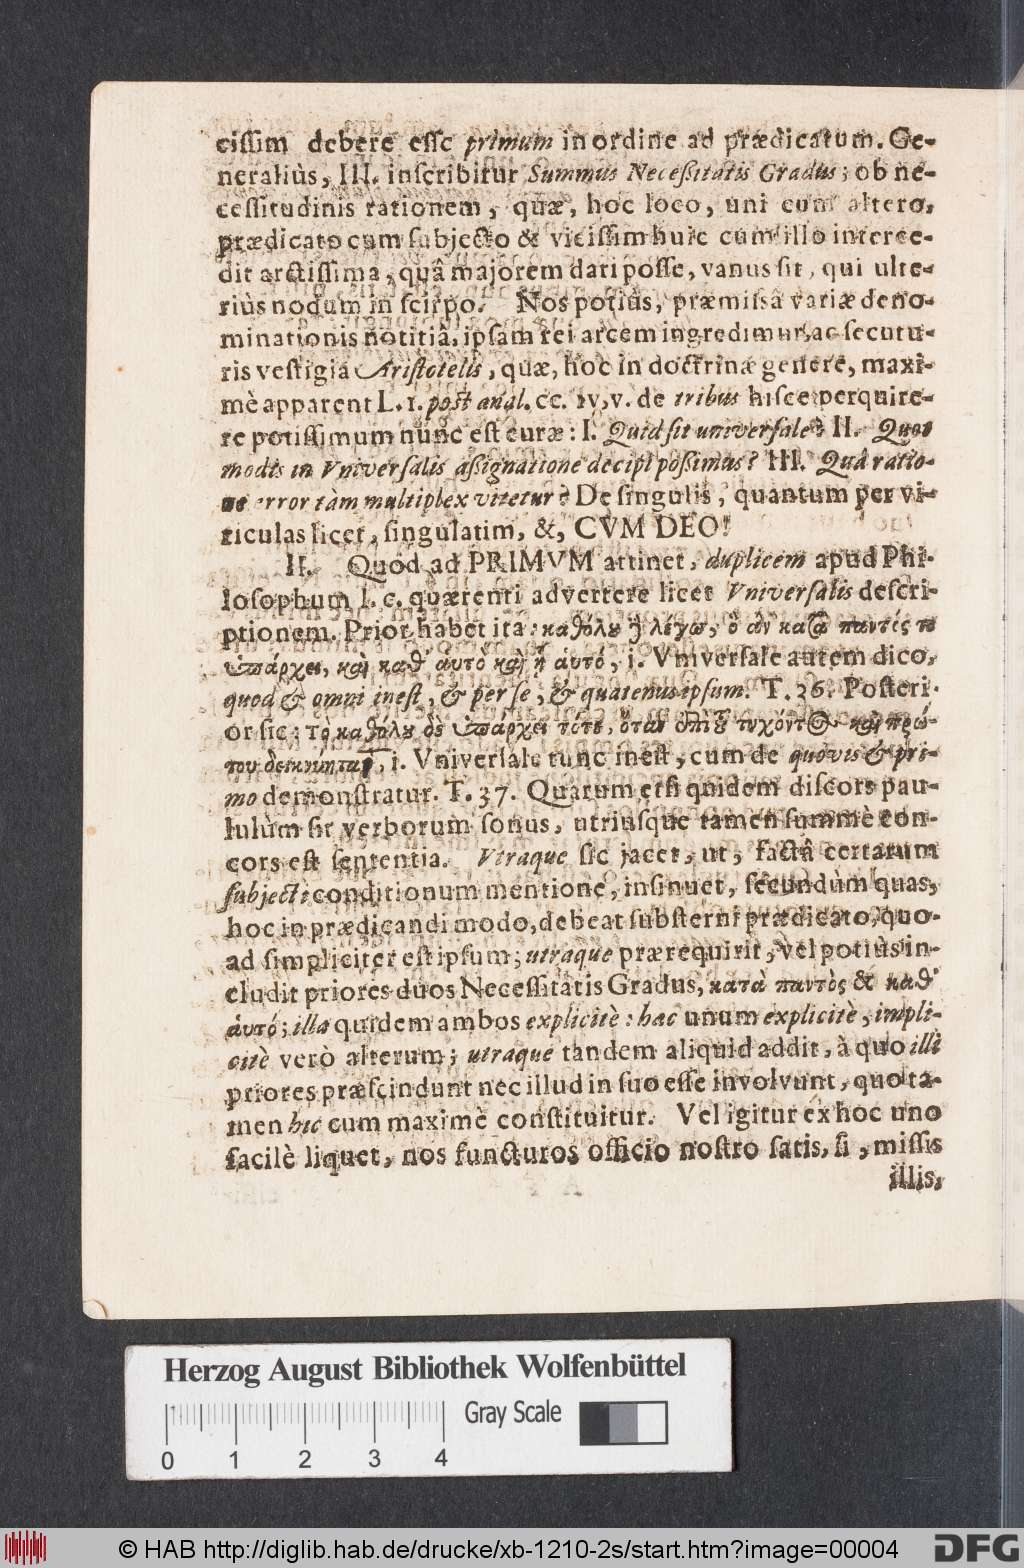 cissim debere esse primum in ordine ad prædicatum. Ge-
neraliùs, III. inscribitur Summus Necessitatis Gradus; ob ne-
cessitudinis rationem, quæ, hoc loco, uni cum altero,
prædicato cum subjecto & vicissim huic cum illo interce-
dit arctissima, quâ majorem dari posse, vanus sit, qui ulte-
riùs nodum in scirpo. Nos potiùs, præmissâ variæ deno-
minationis notitiâ, ipsam rei arcem ingredimur, ac secutu-
ris vestigia Aristotelis, quæ, hoc in doctrinæ genere, maxi-
mè apparent L. 1. post anal. cc. IV, V. de tribus hisce perquire-
re potissimum nunc est curæ: I. Quid sit universale? II. Quot
modis in Vniversalis assignatione decipi possimus? III. Quâ ratio-
ne error tàm multiplex vitetur? De singulis, quantum per vi-
riculas licet, singulatim, &, CVM DEO!
II. Quod ad PRIMVM attinet, duplicem apud Phi-
losophum l. c. quærenti advertere licet Vniversalis descri-
ptionem. Prior habet ita: καθόλου ἢ λέγω, ὃ ἂν κατὰ παντός τε
ὑπάρχει, καὶ καθ' αὑτό καὶ ᾗ αὐτό, i. Vniversale autem dico,
quod & omni inest, & per se, & quatenus ipsum. T. 36. Posteri-
or sic: τὸ καθόλου δὲ ὑπάρχει τότε, ὅταν ἐπὶ τοῦ τυχόντος καὶ πρώ-
του δεικνύηται, i. Vniversale tunc inest, cum de quovis & pri-
mo demonstratur. T. 37. Quarum etsi quidem discors pau-
lulùm sit verborum sonus, utriusque tamen summè con-
cors est sententia. Vtraque sic jacet, ut, factâ certarum
subjecti conditionum mentione, insinuet, secundùm quas,
hoc in prædicandi modo, debeat substerni prædicato, quo-
ad simpliciter est ipsum; utraque prærequirit, vel potiùs in-
cludit priores duos Necessitatis Gradus, κατὰ παντὸς & καθ'
ἁυτό; illa quidem ambos explicitè: hac unum explicitè, impli-
citè verò alterum; utraque tandem aliquid addit, à quo illi
priores præscindunt nec illud in suo esse involvunt, quo ta-
men hic cum maximè constituitur. Vel igitur ex hoc uno
facilè liquet, nos functuros officio nostro satis, si, missis
illis,
Herzog August Bibliothek Wolfenbüttel
Gray Scale
0 1 2 3 4
© HAB http://diglib.hab.de/drucke/xb-1210-2s/start.htm?image=00004
DFG